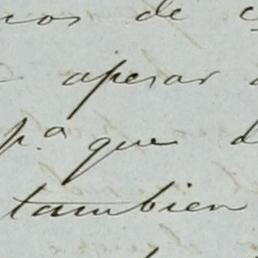 de
apesar
p.ª que
tambien